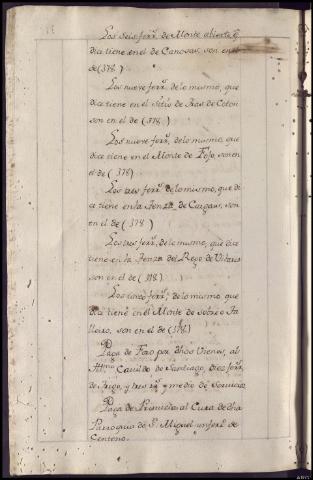 Los seis ferr.s de Monte abierto q.
dice tiene en el de Canosas, son en el
de (378)
Los nueve ferr.s de lo mismo, que
dice tiene en el Sitio de Tras de Coton
son en el de (378)
Los nueve ferr.s de lo mismo, que
dice tiene en el Monte de Fojo, son en
el de (378)
Los tres ferr.s de lo mismo, que di
ce tiene en la Jenza de son
en el de (378)
Los tres ferr.s de lo mismo, que dice
tiene en la Jenza del Rego de Vilares
son en el de (378)
Los ferr.s de lo mismo que
dice tiene en el Monte de sobre o Fa
lleiro, son en el de (378)
Paga de por dhos Vienes, al
Cavildo de Santiago, Diez ferr.s
de trigo, y tres r.s y medio de Servicio
Paga de Primicia al Cura de dha
Parroquia de S. Miguel un ferr.o de
Centeno.